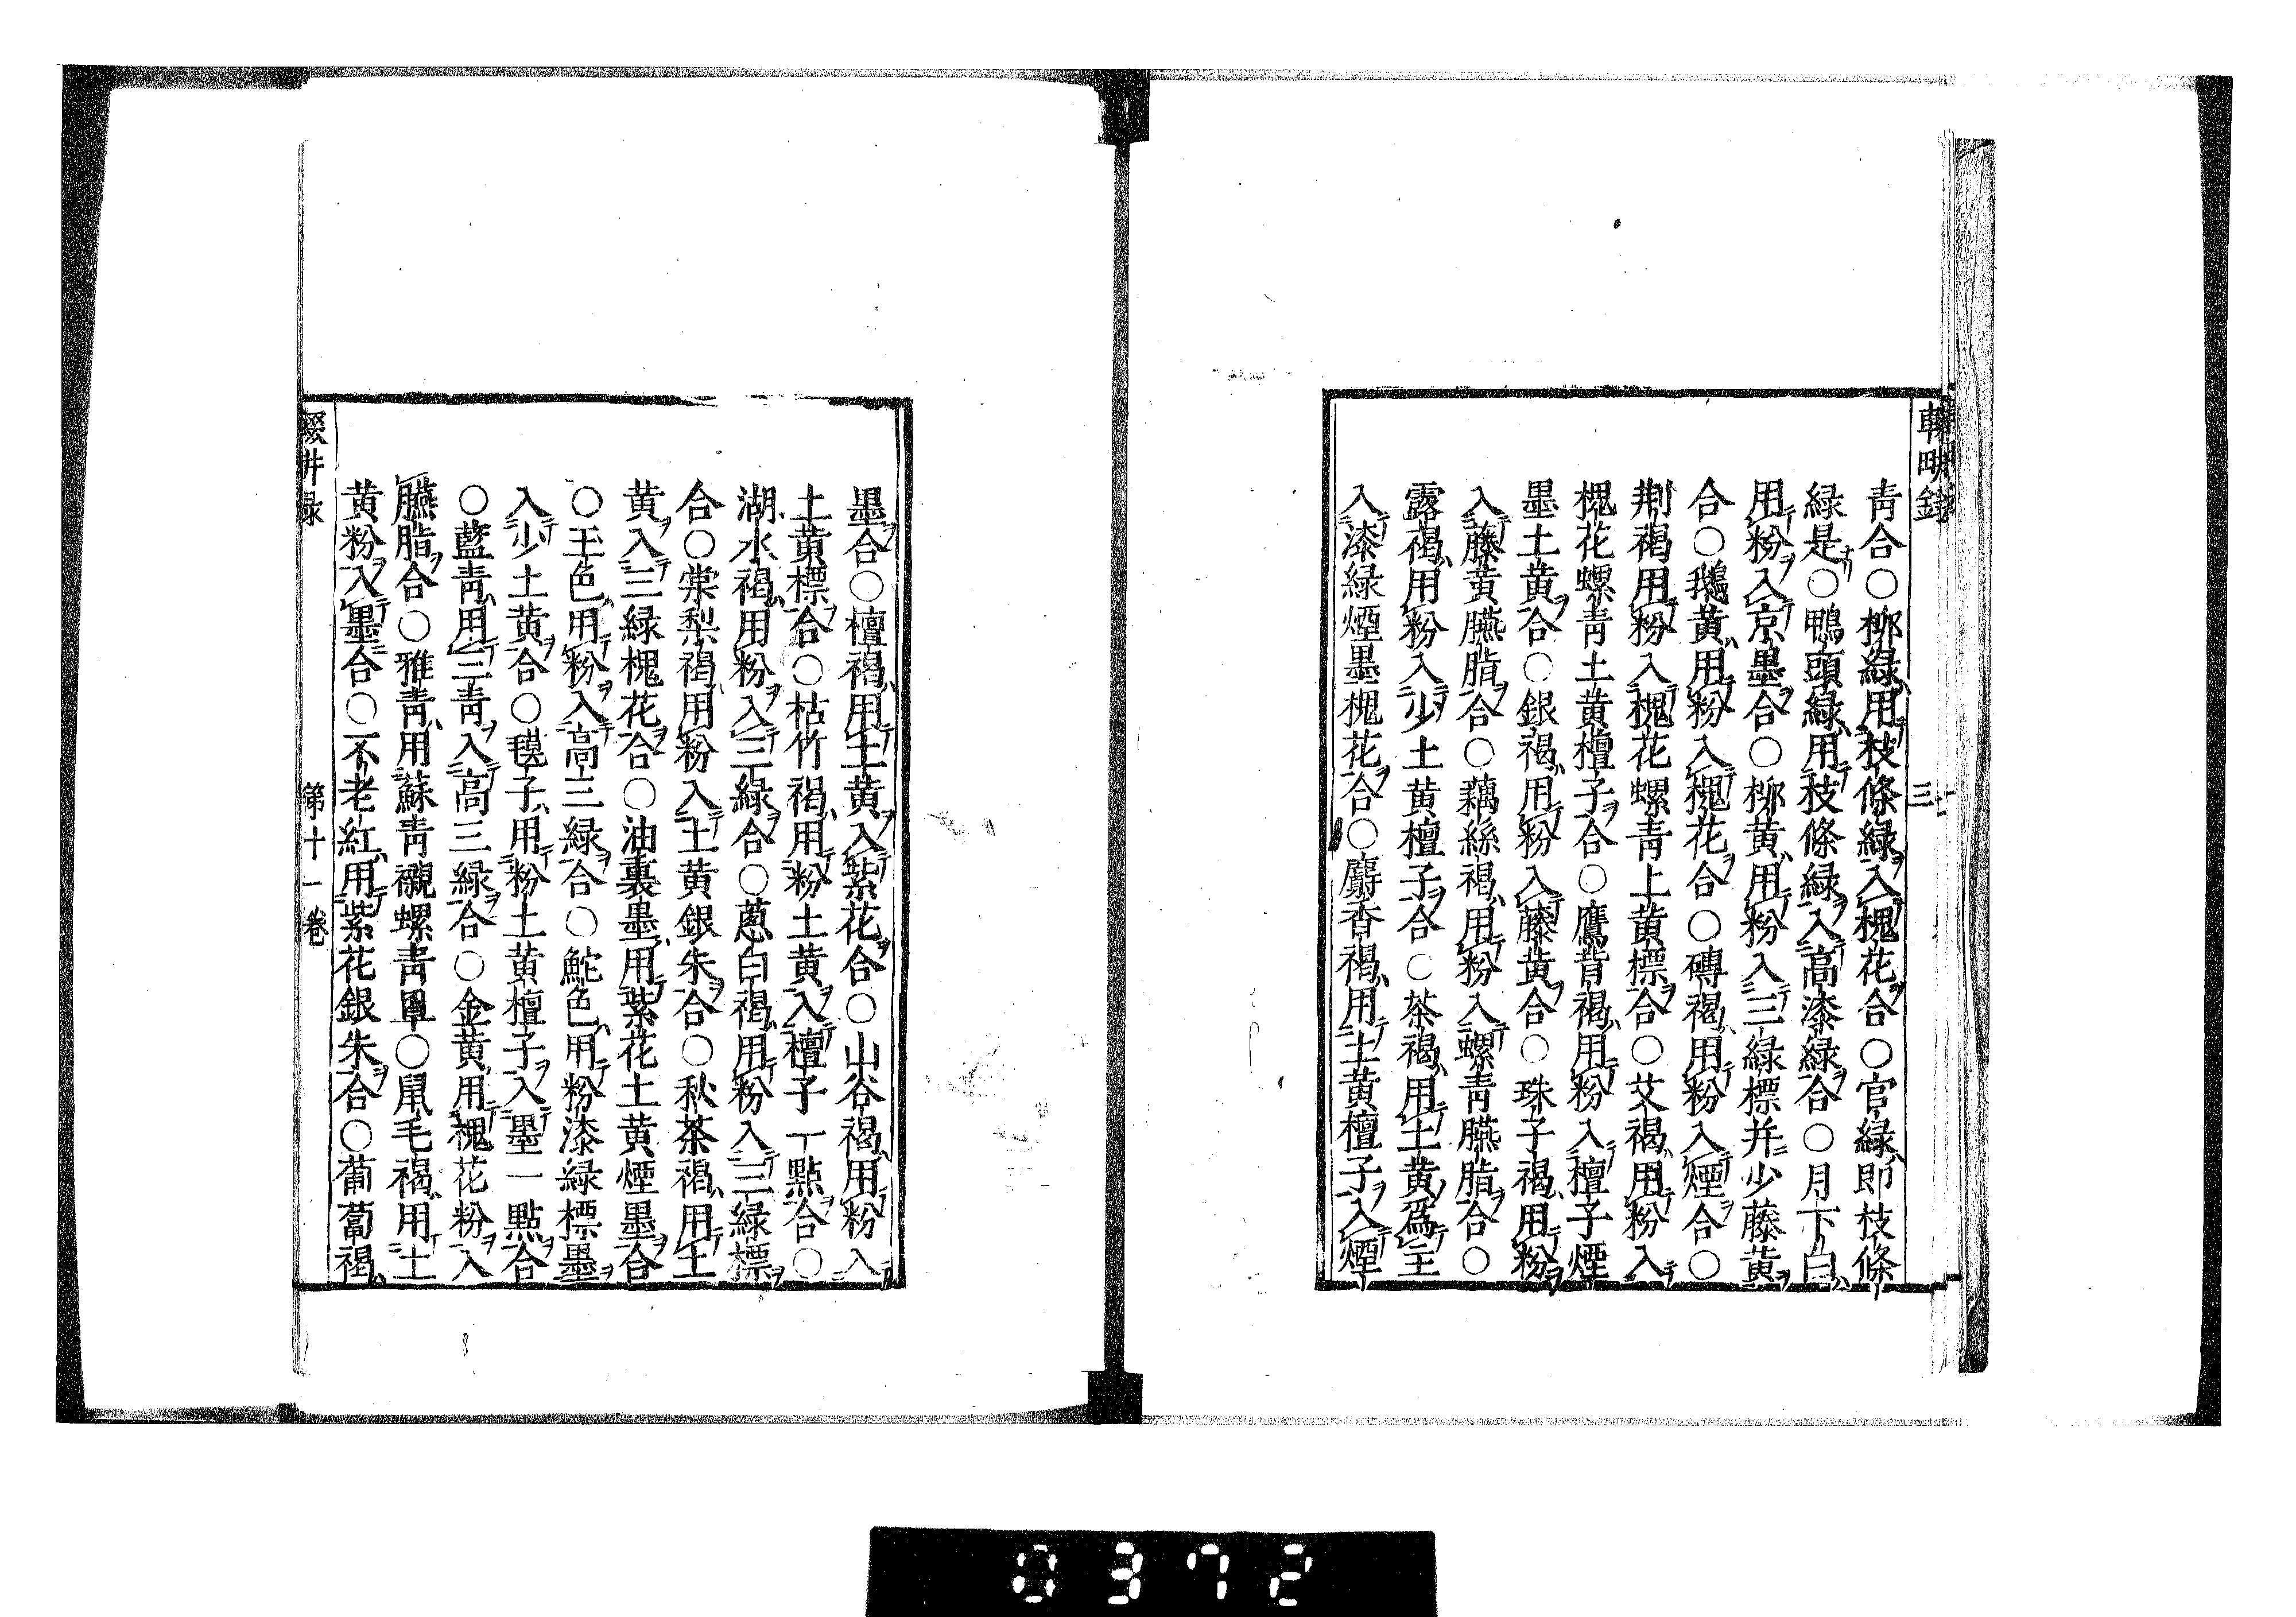 輟畊録
三
青合○栁緑用枝條緑入槐花合○官緑即枝條
緑是○鴨頭緑用枝條緑入高漆緑合○月下白
用粉入京墨合○栁黄用粉入三緑標并少藤黄
合○鵝黄用粉入槐花合○磚褐用粉入煙合○
荆褐用粉入槐花螺青土黄標合○艾褐用粉入
槐花螺青土黄檀子合○鷹背褐用粉入檀子煙
墨土黄合○銀褐用粉入藤黄合○珠子褐用粉
入藤黄臙脂合○藕絲褐用粉入螺青臙脂合○
露褐用粉入少土黄檀子合○茶褐用土黄爲主
入漆緑煙墨槐花合○麝香褐用土黄檀子入煙
墨合○檀褐用土黄入紫花合○山谷褐用粉入
土黄標合○枯竹褐用粉土黄入檀子一點合○
湖水褐用粉入三緑合○蔥白褐用粉入三緑標
合○棠梨褐用粉入土黄銀朱合○秋茶褐用土
黄入三緑槐花合○油裏墨用紫花土黄煙墨合
○玉色用粉入高三緑合○鮀色用粉漆緑標墨
入少土黄合○毯子用粉土黄檀子入墨一點合
○藍青用三青入高三緑合○金黄用槐花粉入
臙脂合○雅青用蘇青襯螺青罩○鼠毛褐用土
黄粉入墨合○不老紅用紫花銀朱合○葡萄褐
輟畊録
第十一卷
0372